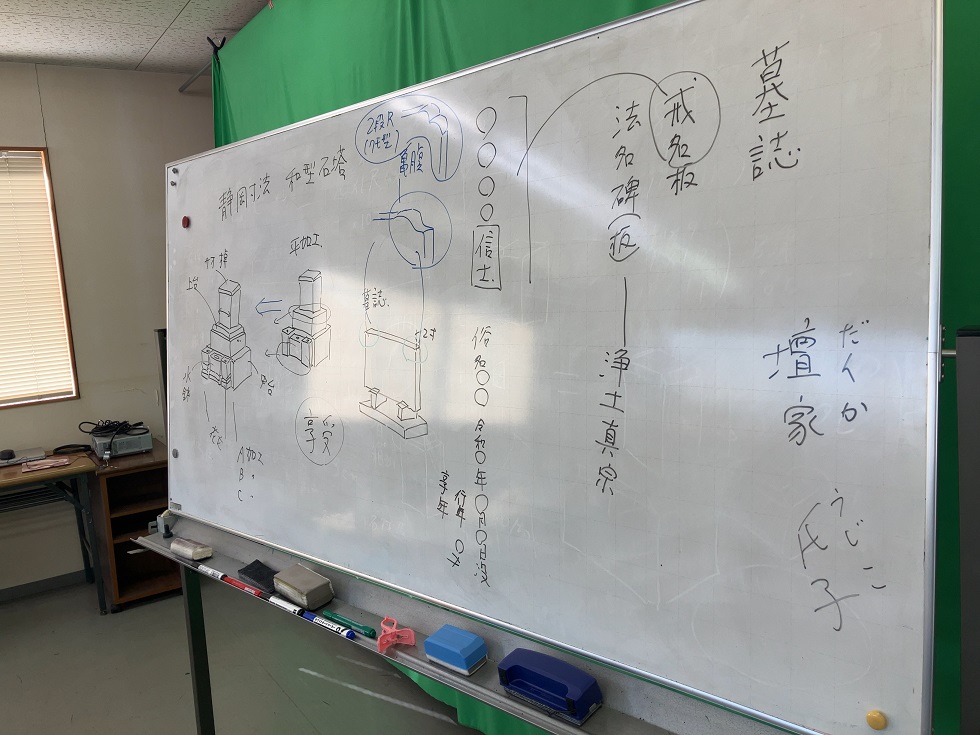 墓誌
だんか
檀家
うじこ
氏子
戒名板
法名碑(板)
浄土真宗
〇〇〇〇信士
俗名〇〇 令和〇年〇月〇日没
行年 〇才
享年
静岡寸法 和型石塔
2段R
亀腹
平加工
墓誌
2寸
享受
上台
水鉢
A加工
B 〃
C 〃